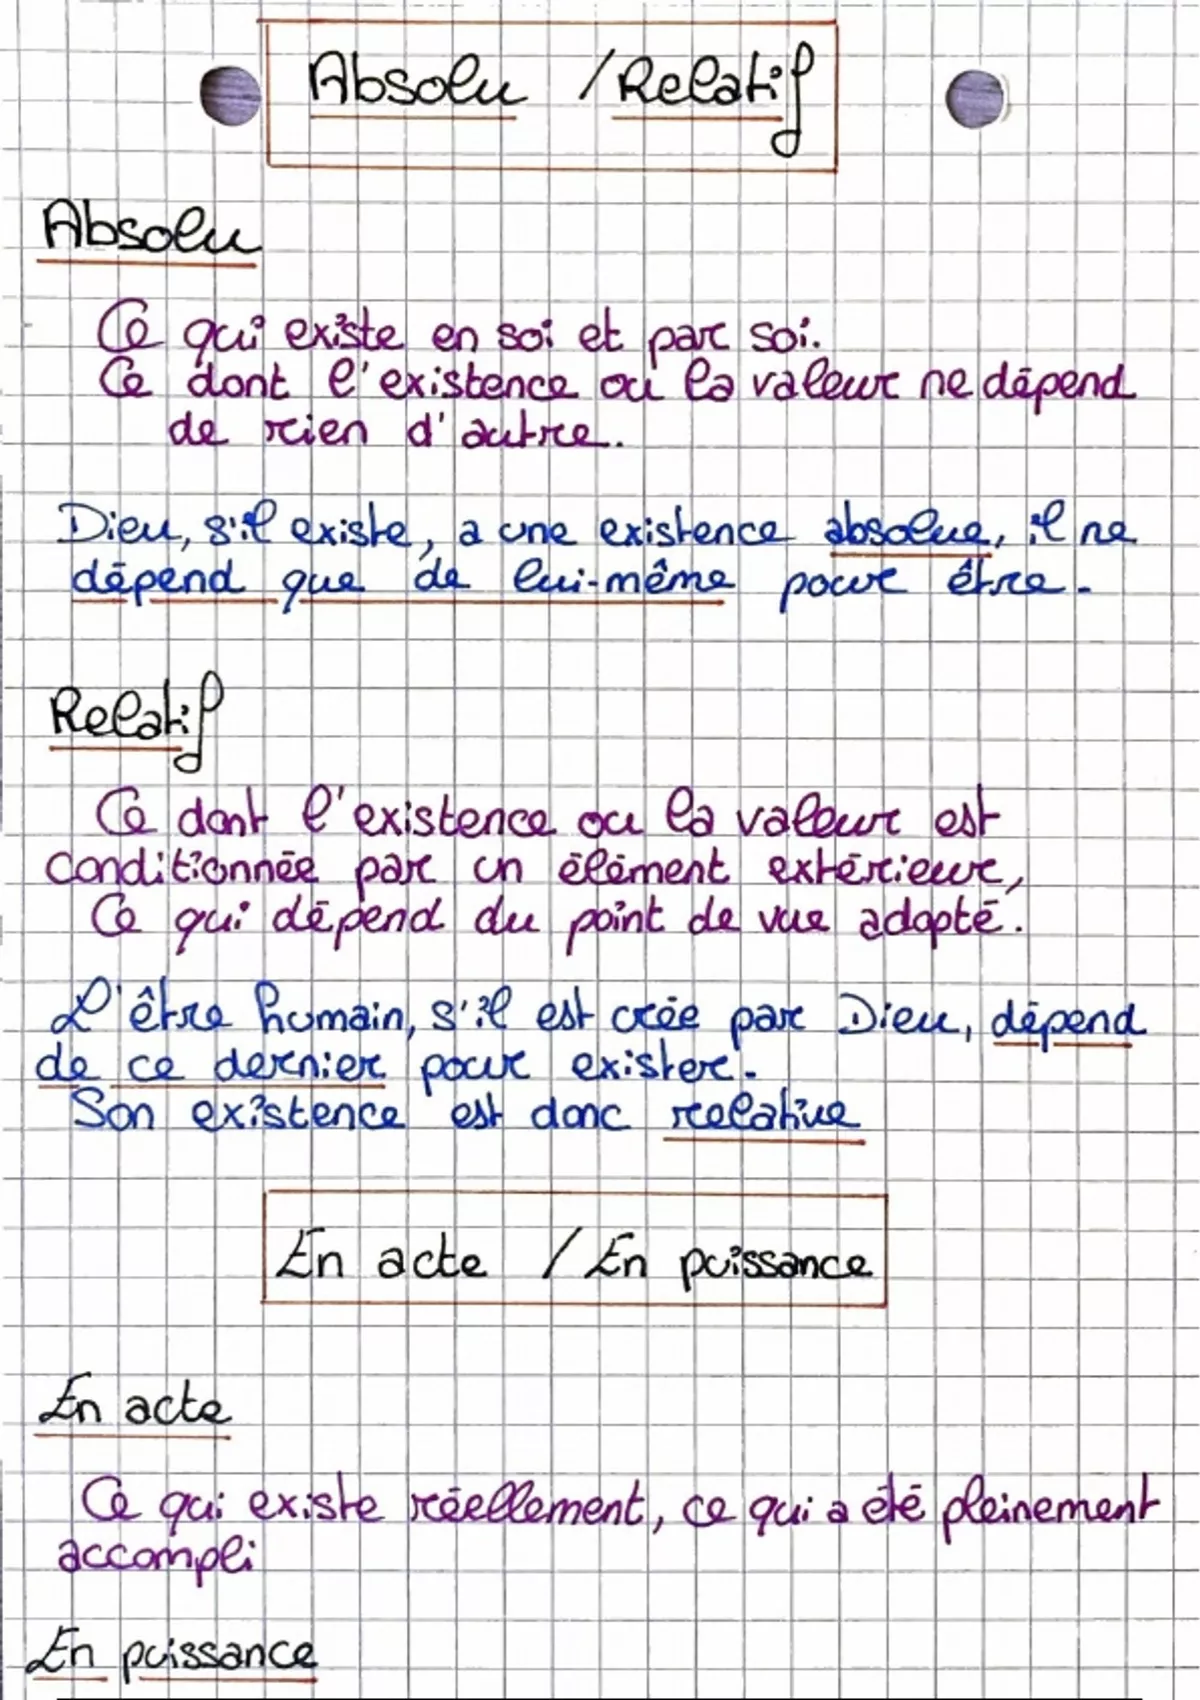 Absolu / Relatif
Absolu
Ce qui existe en soi et par soi.
Ce dont l'existence ou la valeur ne dépend
de rien d'autre.
Dieu, s'il existe, a une existence absolue, il ne
dépend que de lui-même pour être.
Relatif
Ce dont l'existence ou la valeur est
conditionnée par un élément extérieur,
Ce qui dépend du point de vue adopté.
L'être humain, s'il est crée par Dieu, dépend
de ce dernier pour exister.
Son existence est donc relative
En acte / En puissance
En acte
Ce qui existe réellement, ce qui a été pleinement
accompli
En puissance